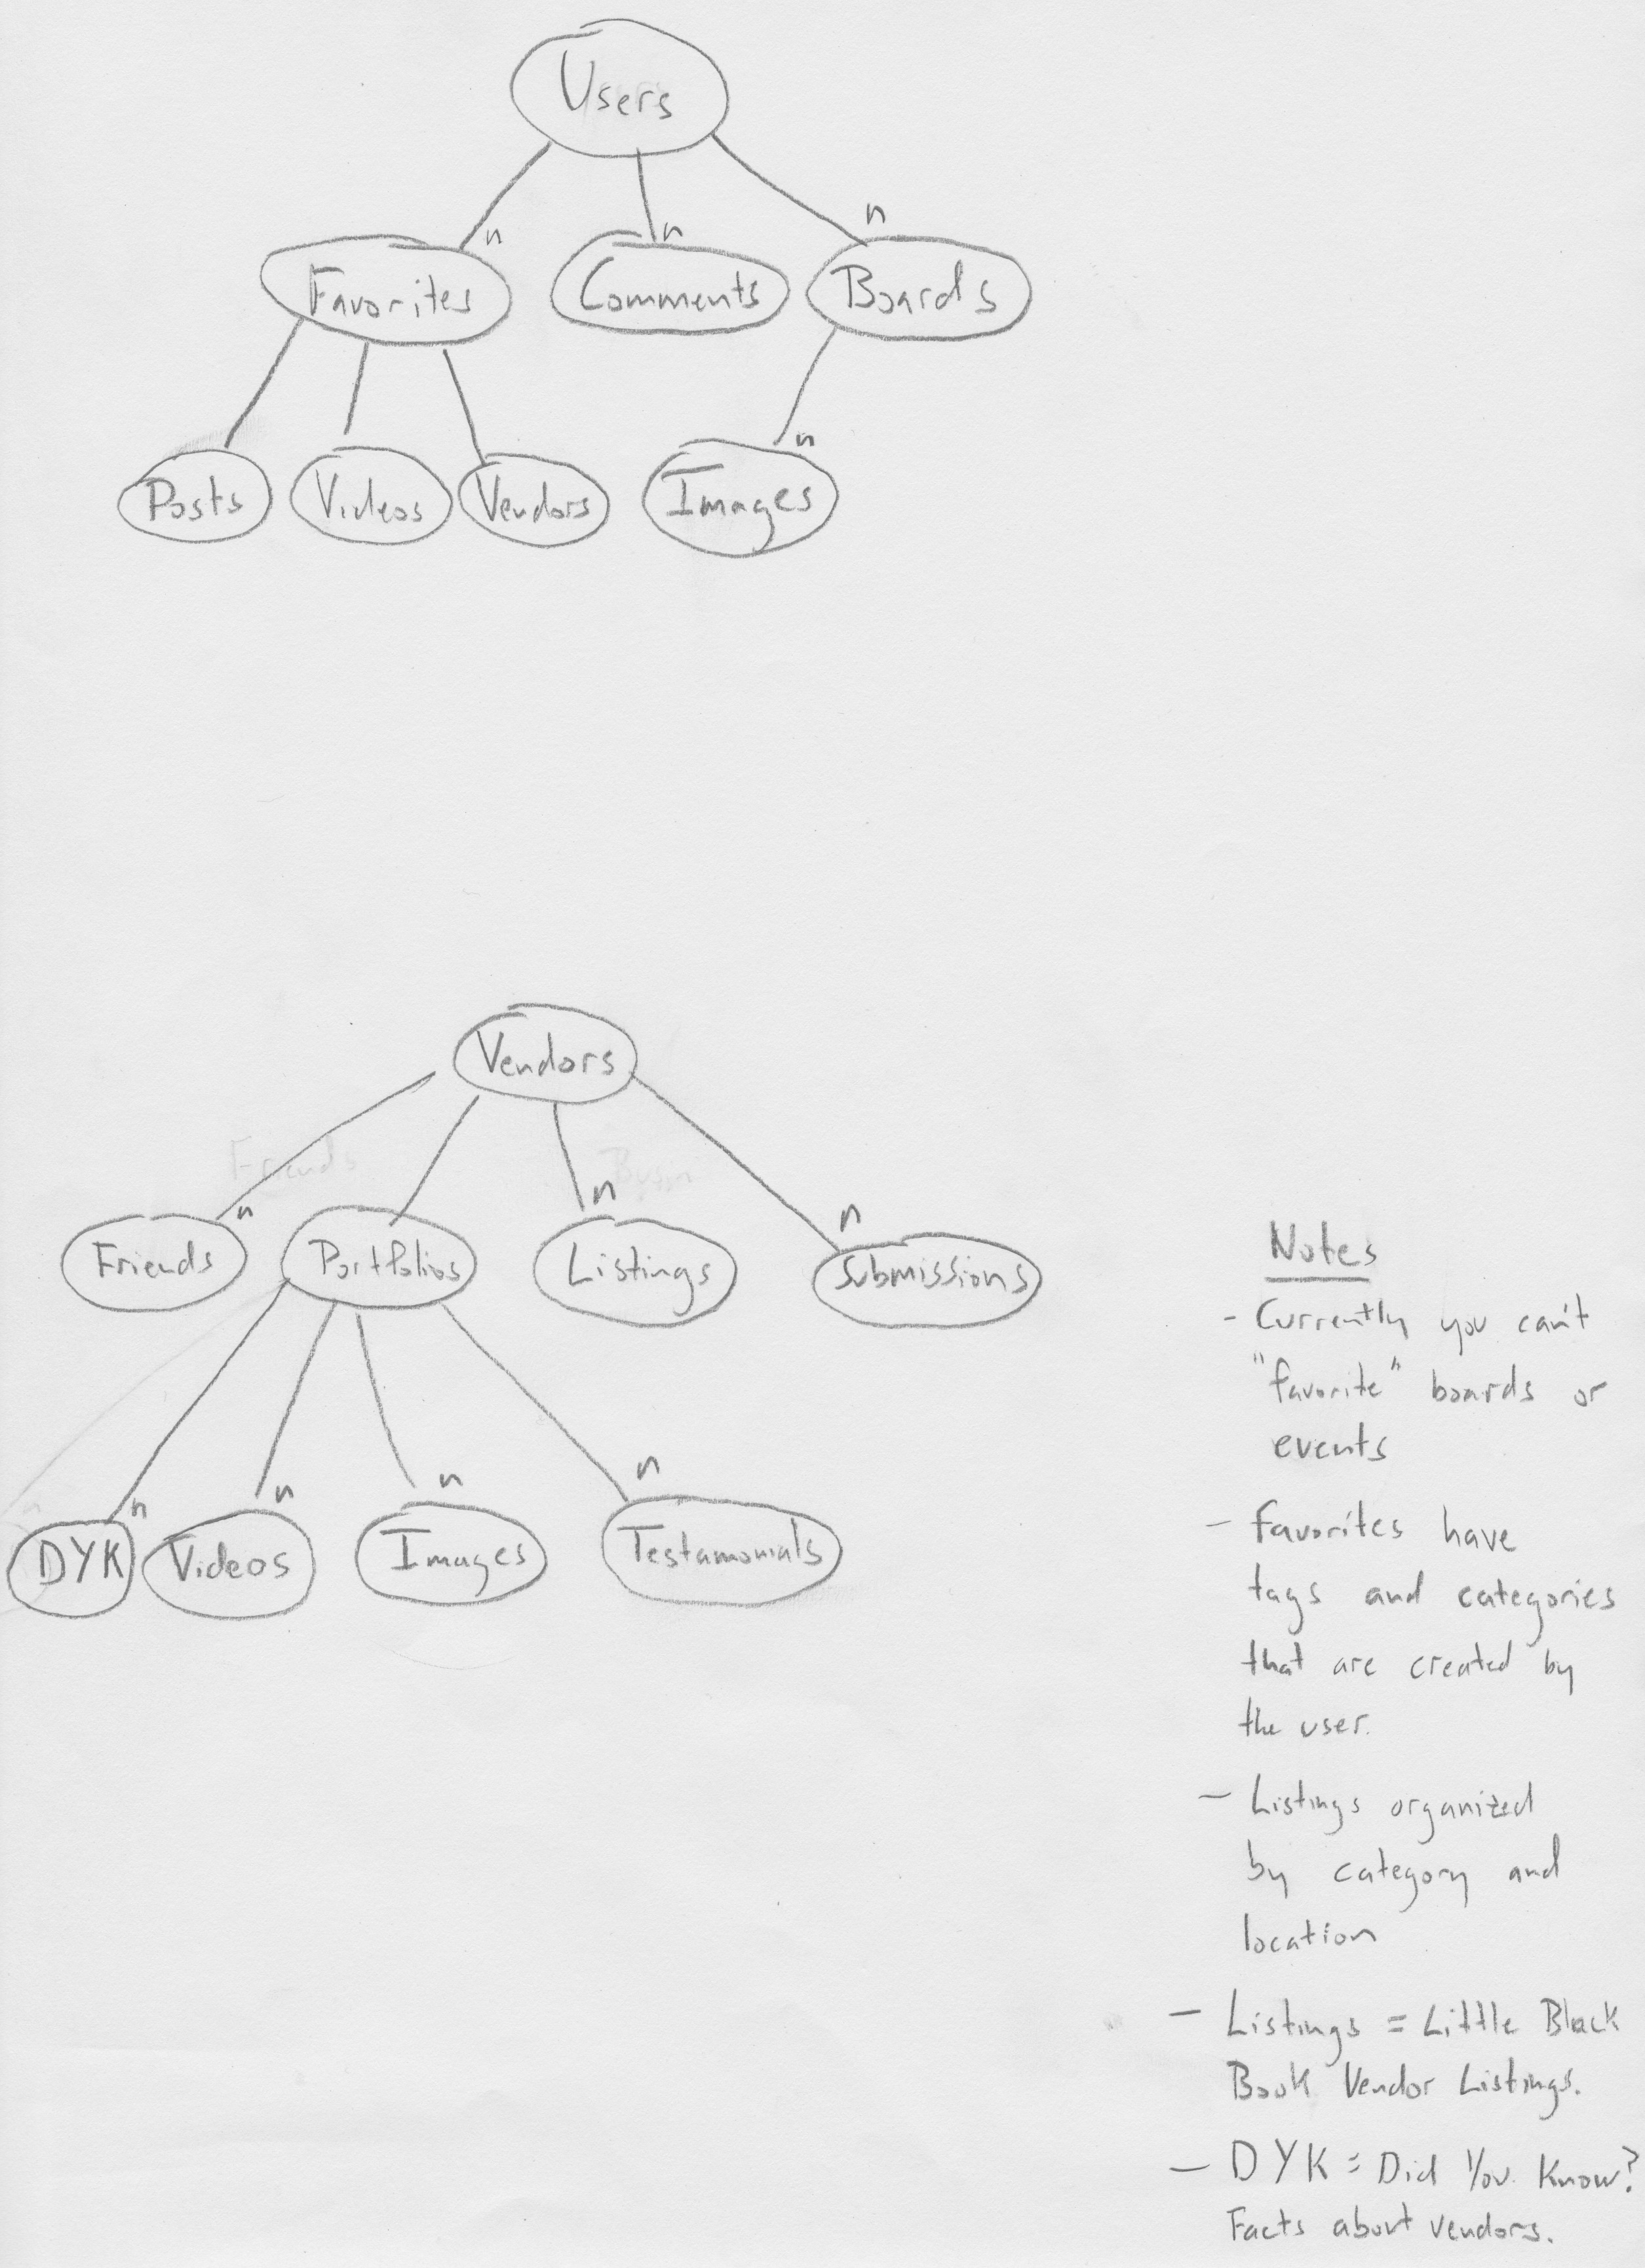 Users
n
n
n
Favorites
Comments
Boards
n
Posts
Videos
Vendors
Images
Vendors
Friends
n
n
n
Friends
Portfolios
Listings
Submissions
n
n
n
n
DYK
Videos
Images
Testamonials
Notes
- Currently you can't
"favorite" boards or
events
- Favorites have
tags and categories
that are created by
the user.
- Listings organized
by category and
location
- Listings = Little Black
Book Vendor Listings.
- DYK = Did You Know?
Facts about vendors.